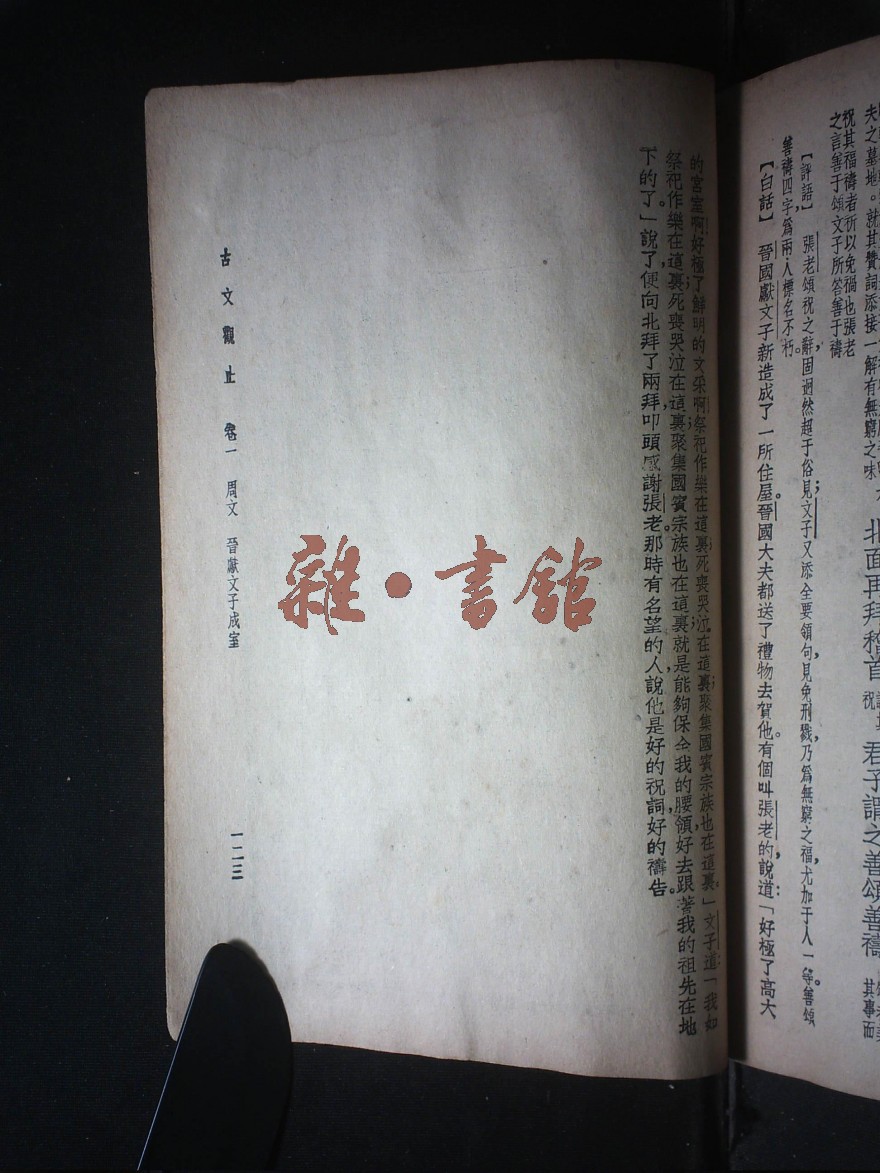 夫之墓地。就其贊詞添接一解有無窮之味
祝其福禱者祈以免禍也張老
之言善于頌文子所答善于禱
北面再拜稽首
君子謂之善頌善禱
其事而
【評語】張老頌祝之辭固迥然超于俗見文子又添全要領句見免刑戮乃爲無窮之福尤加于人一等善頌
善禱四字爲兩人標名不朽。
【白話】晉國獻文子新造成了一所住屋。晉國大夫都送了禮物去賀他。有個叫張老的說道：「好極了高大
的宮室啊好極了鮮明的文采啊祭祀作樂在這裏；死喪哭泣在這裏；聚集國賓宗族也在這裏。」文子道：「我如
祭祀作樂在這裏；死喪哭泣在這裏；聚集國賓宗族也在這裏就是能夠保全我的腰領好去跟著我的祖先在地
下的了。」說了便向北拜了兩拜，叩頭感謝張老。那時有名望的人，說他是好的祝詞，好的禱告。
古文觀止 卷一 周文 晉獻文子成室 一二三
雜·書館